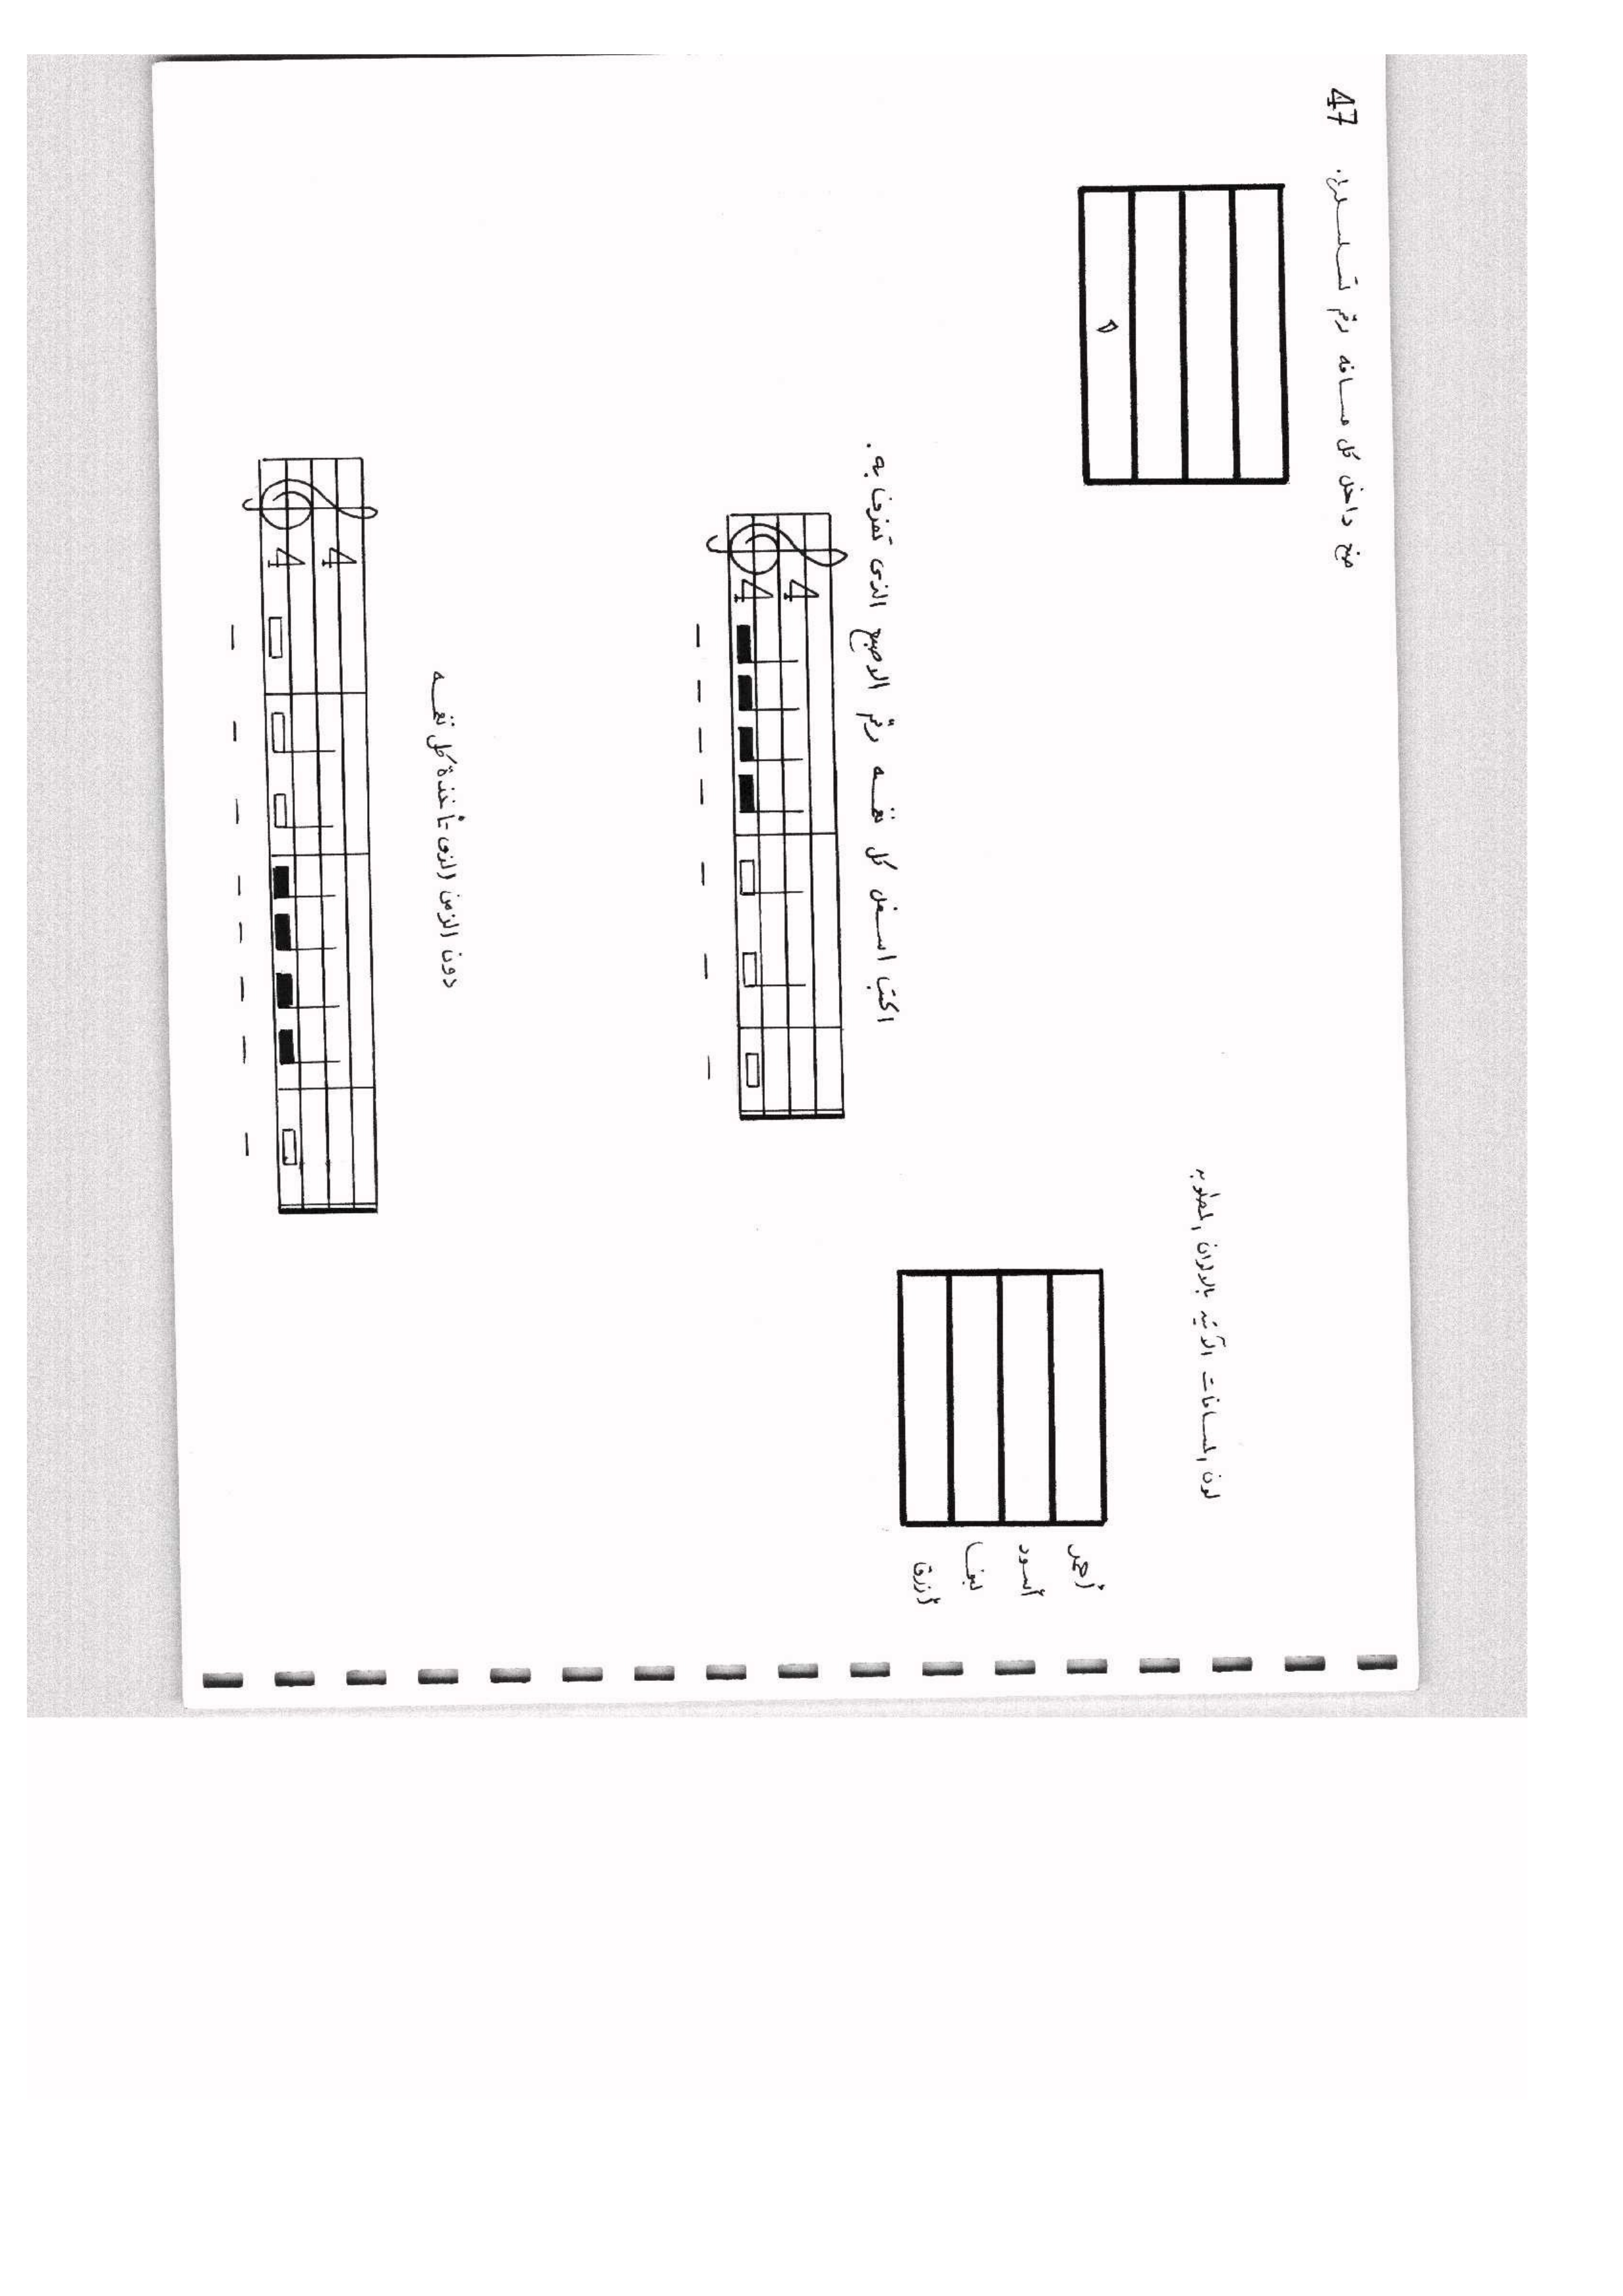 47
ضع داخل كل مسافه رقم تسلسلها.
لون المسافات الآتيه بالالوان المطلوبه
أحمر
أسود
أزرق
اكتب اسفل كل نغمه رقم الاصبع الذى تعزف به.
4
4
دون الزمن الذى تأخذة كل نغمه
4
4